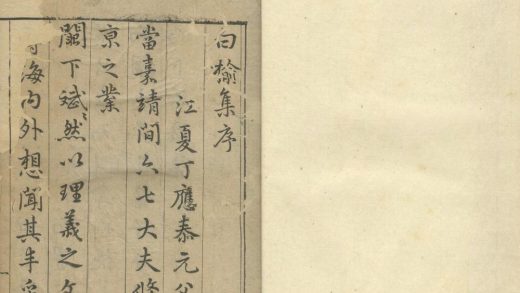 白榆集序
江夏丁應泰元父
當嘉靖間六七大夫修
京之業
闕下斌然以理義之
海內外想聞其丰采